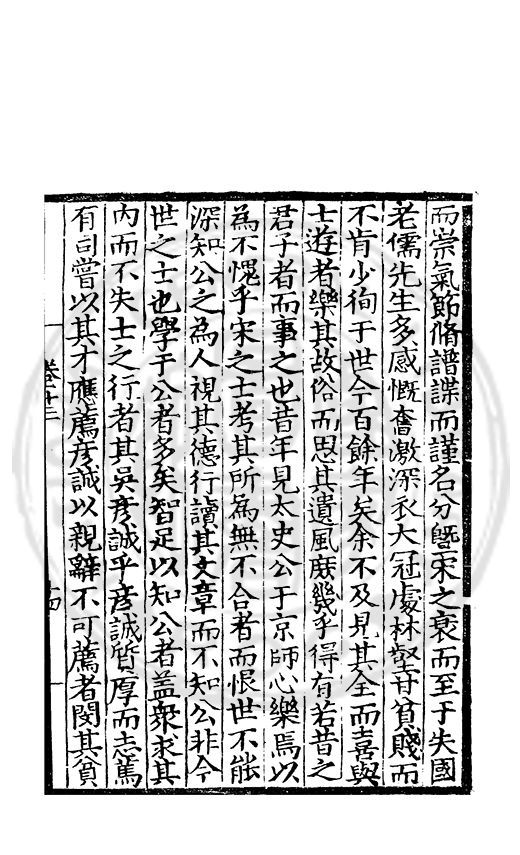 而崇氣節脩譜諜而謹名分曁宋之衰而至于失國
老儒先生多感慨奮激深衣大冠處林壑甘貧賤而
不肯少徇于世今百餘年矣余不及見其全而喜與
士遊者樂其故俗而思其遺風庻幾乎得有若昔之
君子者而事之也昔年見太史公于京師心樂焉以
為不愧乎宋之士考其所為無不合者而恨世不能
深知公之為人視其德行讀其文章而不知公非今
世之士也學于公者多矣智足以知公者盖衆求其
内而不失士之行者其吳彦誠乎彦誠質厚而志篤
有司嘗以其才應薦彦誠以親辭不可薦者閔其貧
卷十三
十四